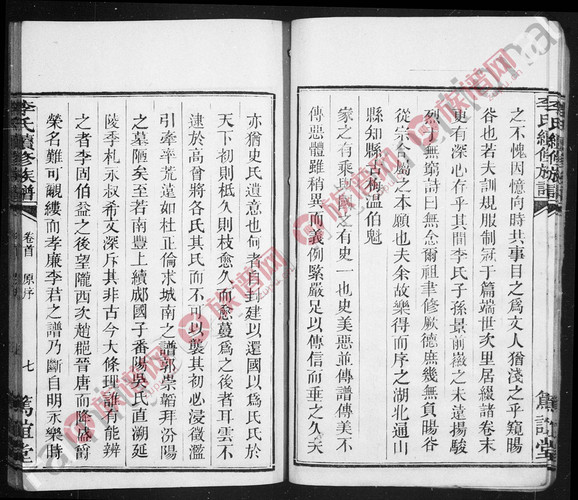 之不愧因憶向時共事目之爲文人猶淺之乎窺暘
谷也若夫訓規服制冠于篇端世次里居綴諸卷末
更有深心存乎其間李氏子孫景前徽之未遠揚駿
烈于無窮詩曰無念爾祖聿修厥德庶幾無負暘谷
從宗所屬之本願也夫余故樂得而序之湖北通山
縣知縣古梅溫伯魁
家之有乘與國之有史一也史美惡並傳譜傳美不
傳惡體雖稍異而義例緊嚴足以傳信而垂之久天
李氏續修族譜
篤誼堂
亦猶史氏遺意也何者自封建以還國以爲氏氏於
天下初則柢久則枝愈久而愈蔓爲之後者耳雲不
逮於高曾將各氏其氏而不以襲其初必浸微濫
引牽率荒遠如杜正倫求城南之譜郭崇韜拜汾陽
之墓陋矣至若南豐上續郕國子番陽吳氏直溯延
陵季札永叔希文深斥其非古今大條理誰有能辨
之者李固伯益之後望隴西次趙郡晉唐而降盛爵
榮名難可覼縷而孝廉李君之譜乃斷自明永樂時
李氏續修族譜
卷首
原序
七
篤誼堂
族譜网